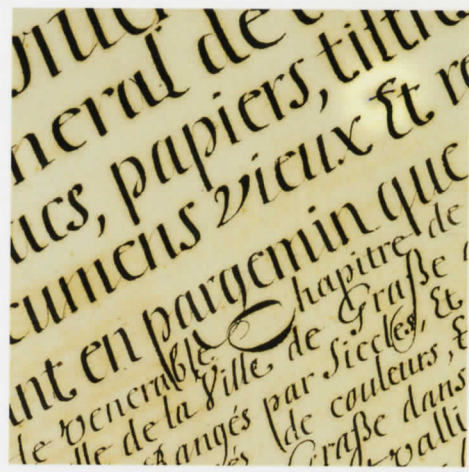 neral de
sacs, papiers, tiltres
cumens vieux Et re
ant en pargemin que
le venerable Chapitre de
lle de la Ville de Graße
Rangés par Siecles, Et
de couleurs, E
Graße dans
valli